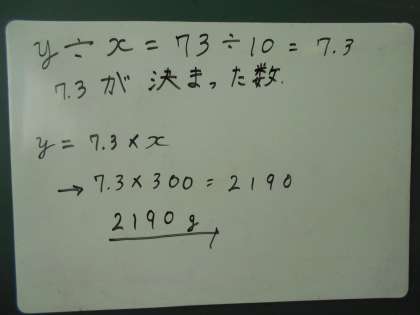 y÷x=73÷10=7.3
7.3が決まった数.
y=7.3×x
→7.3×300=2190
2190g